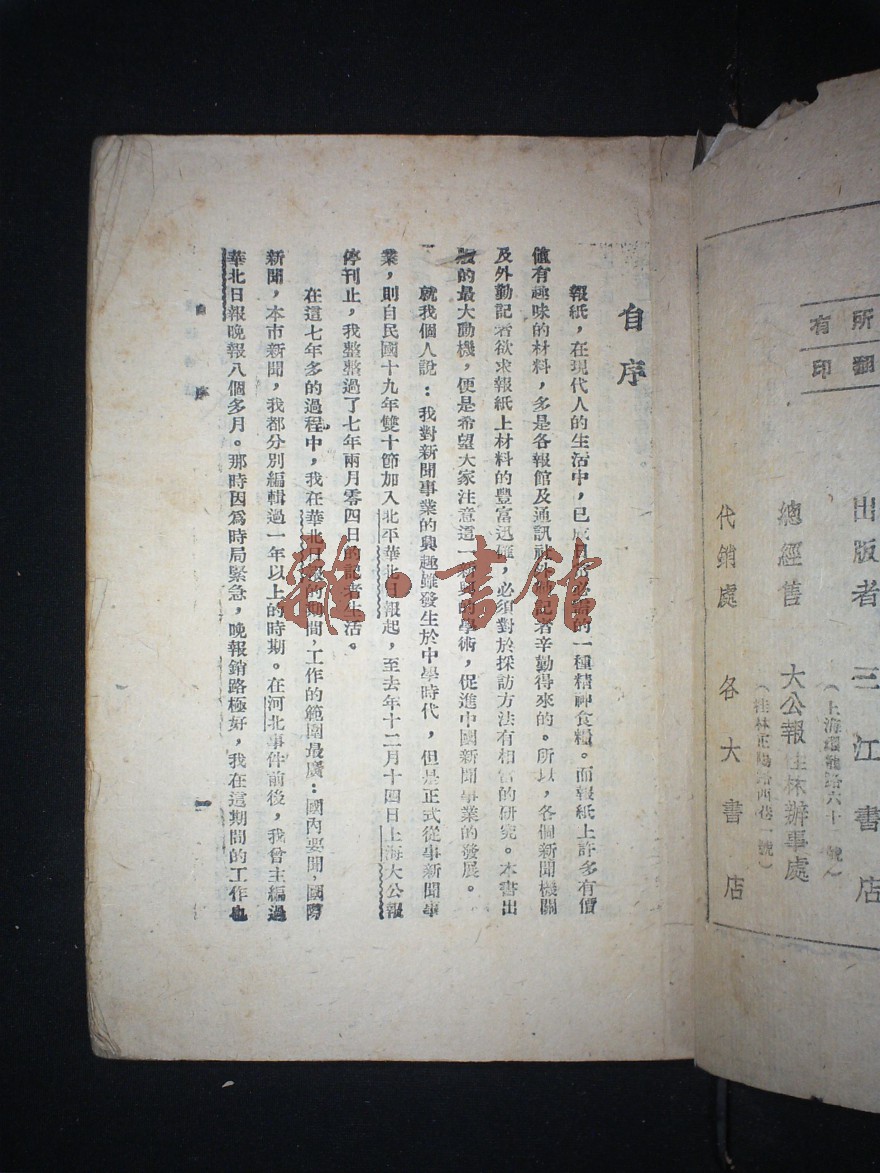 所
有
翻
印
出版者 三江書店
(上海
六十
號)
總經售 大公報桂林辦事處
(桂林正陽路西巷一號)
代銷處 各大書店
自序
報紙,在現代人的生活中,已成為必需的一種精神食糧。而報紙上許多有價
值有趣味的材料,多是各報館及通訊社外勤記者辛勤得來的。所以,各個新聞機關
及外勤記者欲求報紙上材料的豐富迅確,必須對於採訪方法有相當的研究。本書出
版的最大動機,便是希望大家注意這一新興的學術,促進中國新聞事業的發展。
就我個人說:我對新聞事業的興趣雖發生於中學時代,但是正式從事新聞事
業,則自民國十九年雙十節加入北平華北日報起,至去年十二月十四日上海大公報
停刊止,我整整過了七年兩月零四日的記者生活。
在這七年多的過程中,我在華北日報的期間,工作的範圍最廣:國內要聞,國際
新聞,本市新聞,我都分別編輯過一年以上的時期。在河北事件前後,我曾主編過
華北日報晚報八個多月。那時因為時局緊急,晚報銷路極好,我在這期間的工作也
自序
一
雜·書館